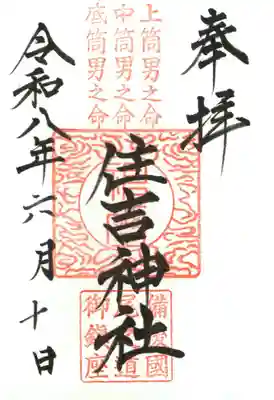 奉拝
上筒男之命
中筒男之命
底筒男之命
住吉神社
備後國
御鎮座
令和八年六月十日